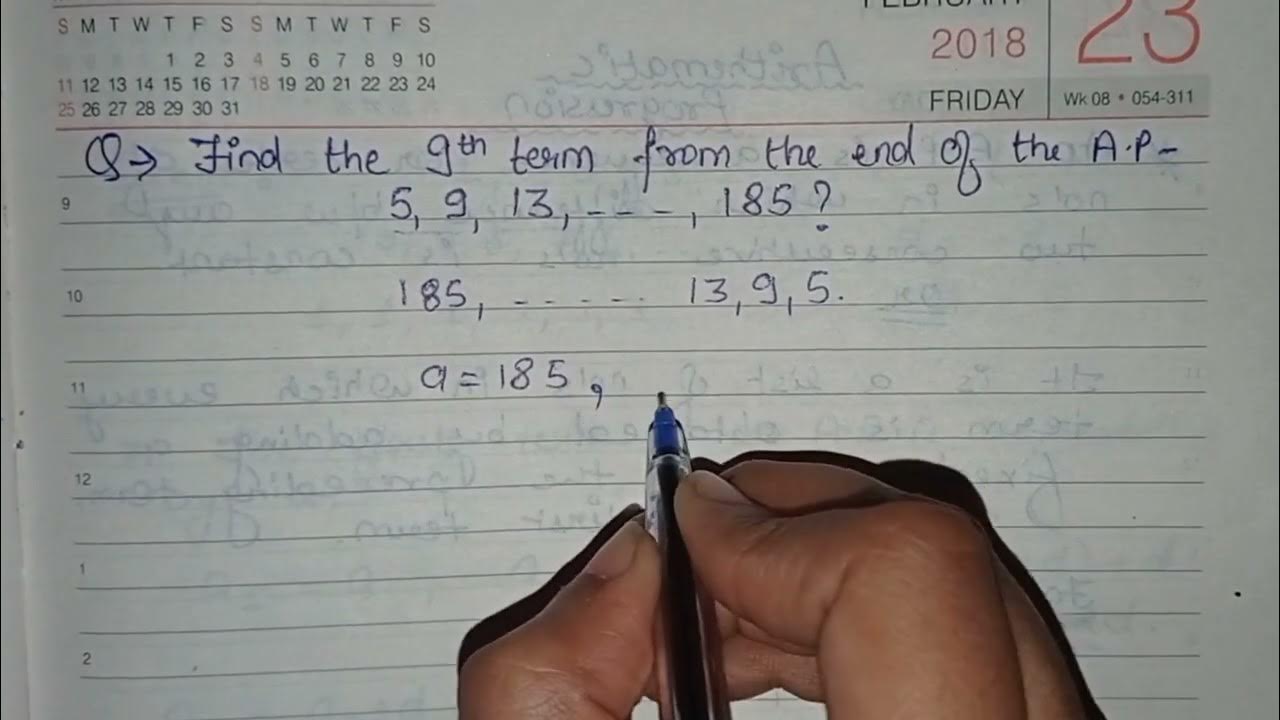 S M T W T F S S M T W T F S
1 2 3 4 5 6 7 8 9 10
11 12 13 14 15 16 17 18 19 20 21 22 23 24
25 26 27 28 29 30 31
FEBRUARY
2018
FRIDAY
23
Wk 08 • 054-311
Q→ Find the 9th term from the end of the A.P-
9
5, 9, 13, ----, 185?
10
185, ------ 13, 9, 5.
11
a = 185,
12
1
2